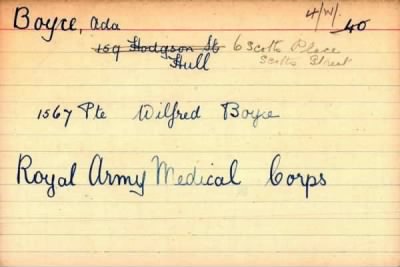 Boyce, Ada 4/W/. 40
159 Hodgson St 6 Scotts Place
Hull Scotts Street
1567 Pte Wilfred Boyce
Royal Army Medical Corps